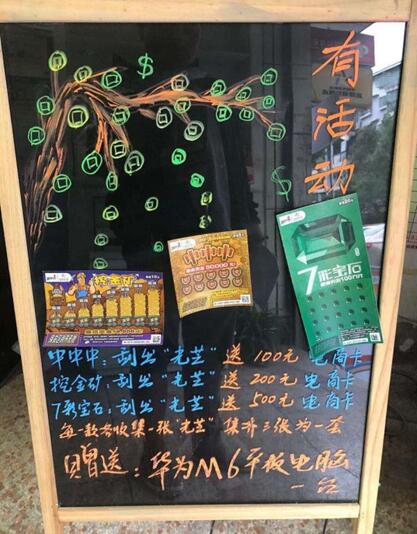 有活动
挖金矿
中中中
7彩宝石
中中中:刮出"光芒"送100元电商卡
挖金矿:刮出"光芒"送200元电商卡
7彩宝石:刮出"光芒"送500元电商卡
每一款各收集一张"光芒"集齐三张为一套
赠送:华为M6平板电脑
一台